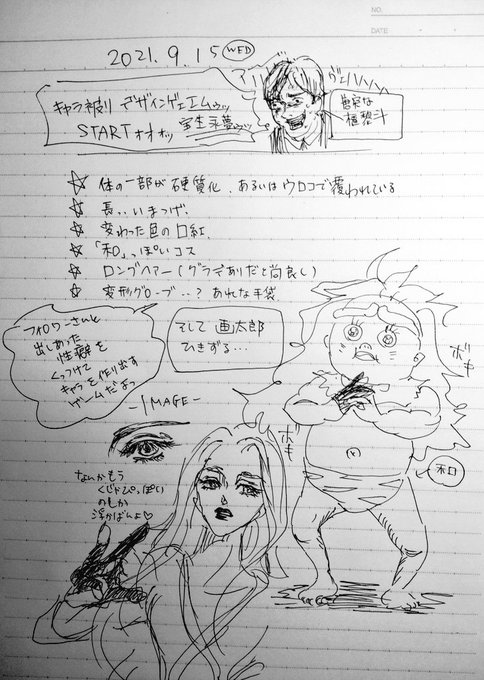 NO.
DATE
2021.9.15 WED
キャラ被り デザインゲェエムゥッ
STARTォオオッ 宝生永夢ゥッ
ヴェ
善良な
檀黎斗
☆ 体の一部が硬質化、あるいはウロコで覆われている
☆ 長‥いまつげ
☆ 変わった色の口紅
☆ 「和」っぽいコス
☆ ロングヘアー(グラデありだと尚良し)
☆ 変形グローブ‥? あれな手袋
フォロワーさんと
出しあった
性癖を
くっつけて
キャラを作り出す
ゲームだよっ
そして 画太郎
ひきずる‥
-IMAGE-
ボキ
ボキ
和
なんかもう
くじドピっぽい
のしか
浮かばんよ♡